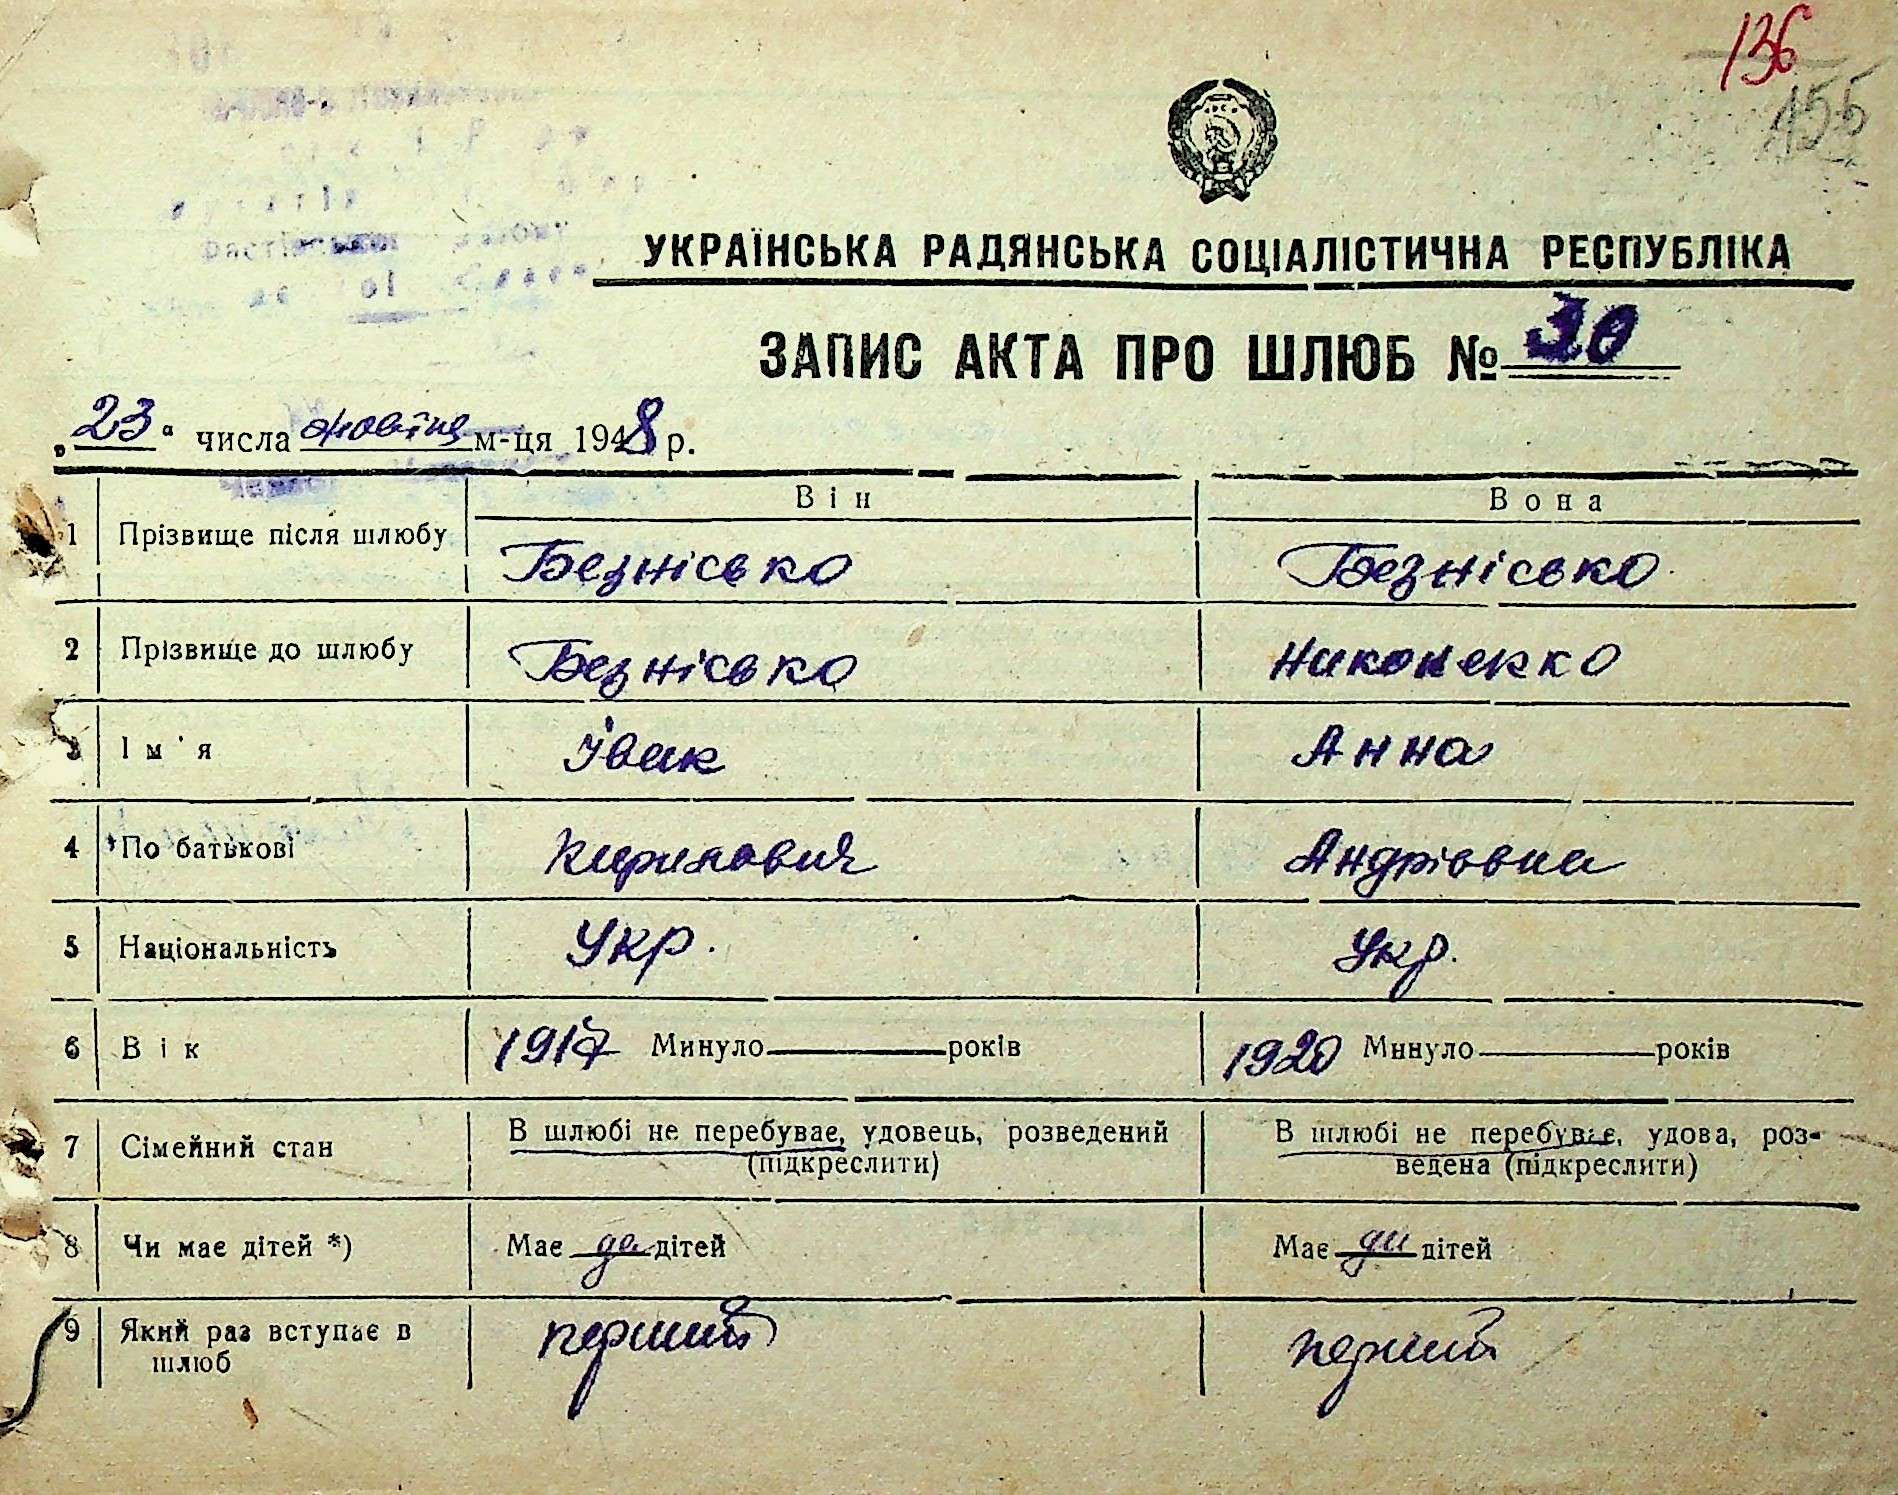 136
155
УКРАЇНСЬКА РАДЯНСЬКА СОЦІАЛІСТИЧНА РЕСПУБЛІКА
ЗАПИС АКТА ПРО ШЛЮБ № 30
„23“ числа жовтня м-ця 1948 р.
Він Вона
1 Прізвище після шлюбу Безнісько Безнісько
2 Прізвище до шлюбу Безнісько Никоненко
3 Ім'я Іван Анна
4 По батькові Кирилович Андріівна
5 Національність Укр. Укр.
6 Вік 1917 Минуло років 1920 Минуло років
7 Сімейний стан В шлюбі не перебуває, удовець, розведений В шлюбі не перебуває, удова, роз-
(підкреслити) ведена (підкреслити)
8 Чи має дітей *) Має да дітей Має да дітей
9 Який раз вступає в перший перший
шлюб